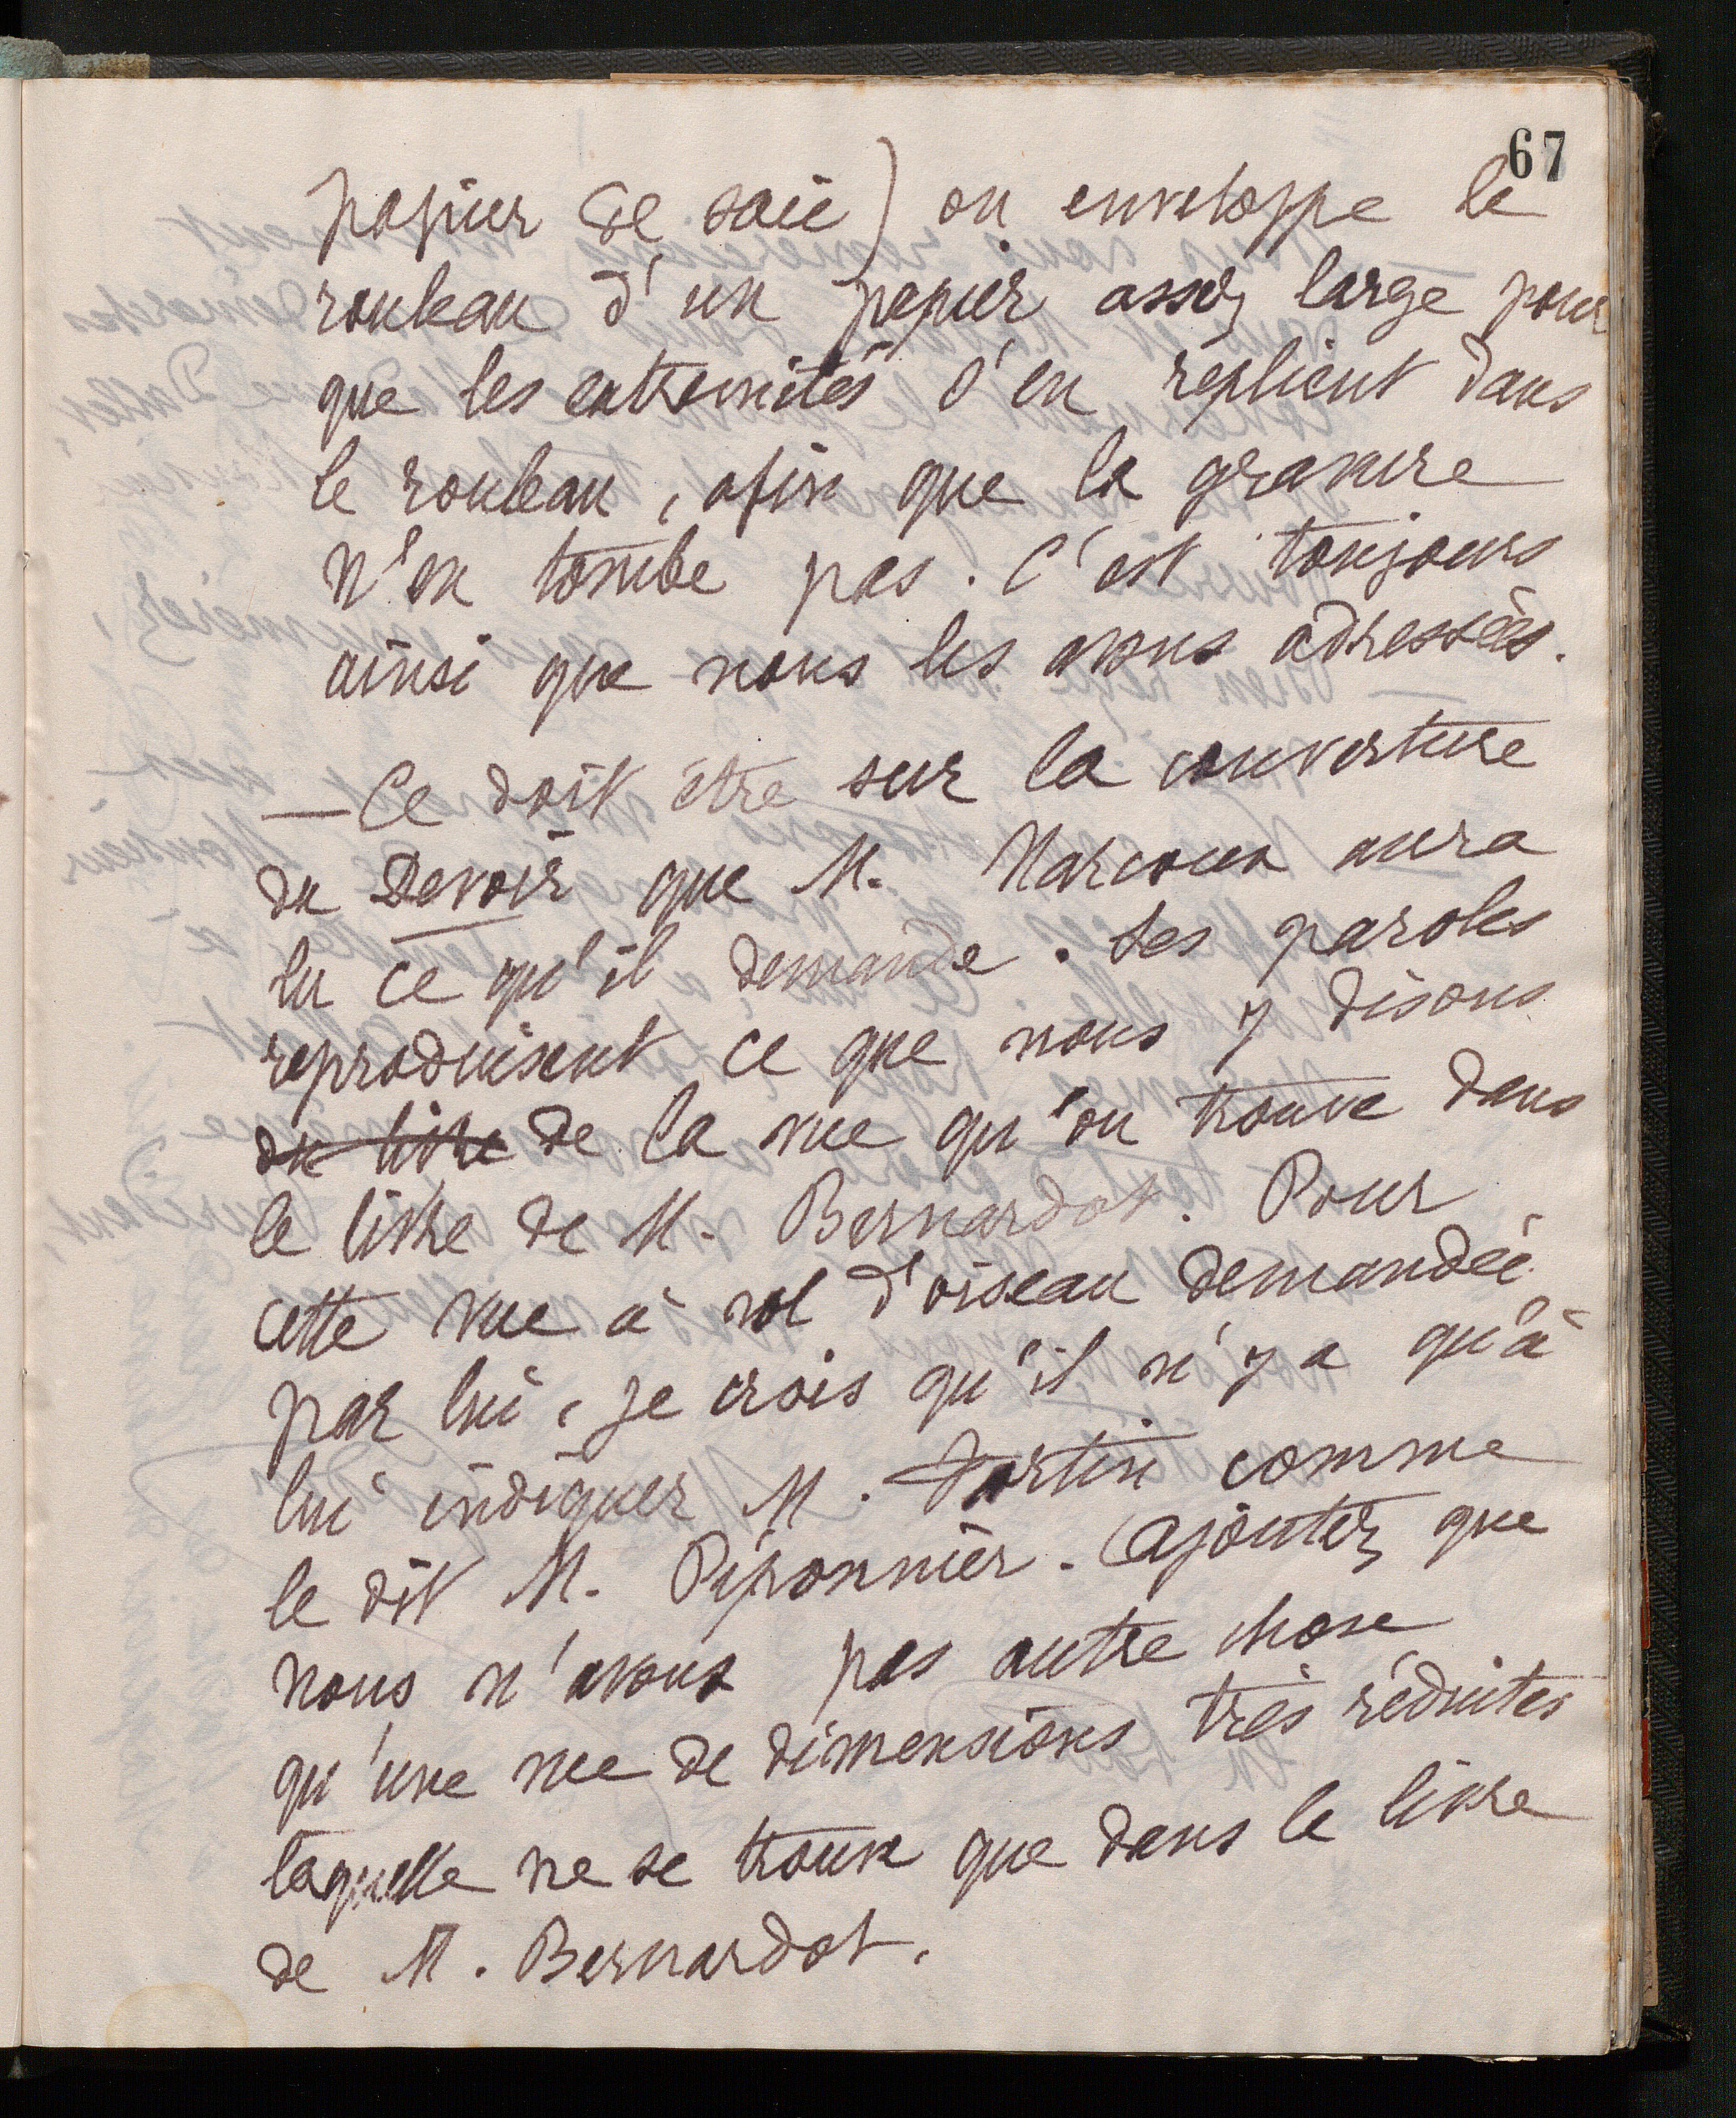 67
papier de soie) on enveloppe le
rouleau d'un papier assez large pour
que les extrémités s'en replient dans
le rouleau, afin que la gravure
n'en tombe pas. C'est toujours
ainsi que nous les avons adressées.
— Ce doit être sur la couverture
du Devoir que M. Marcoux aura
lu ce qu'il demande. Ses paroles
reproduisent ce que nous y disons
du livre de la vue qu'on trouve dans
le livre de M. Bernardot. Pour
cette vue à vol d'oiseau demandée
par lui, je crois qu'il n'y a qu'à
lui indiquer M. comme
le dit M. Piponnier. Ajoutez que
nous n'avons pas autre chose
qu'une vue de dimensions très réduites
laquelle ne se trouve que dans le livre
de M. Bernardot.